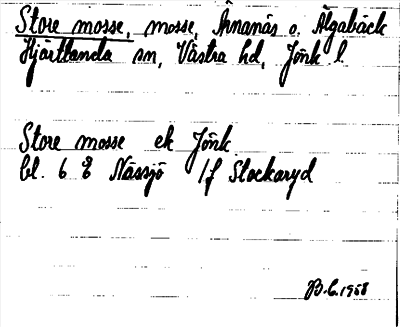 Store mosse, mosse, Annanäs o. Älgabäck
Hjärtlanda sn, Västra hd, Jönk l.
Store mosse ek Jönk
bl. 6 E Nässjö 1f Stockaryd
B.C. 1958